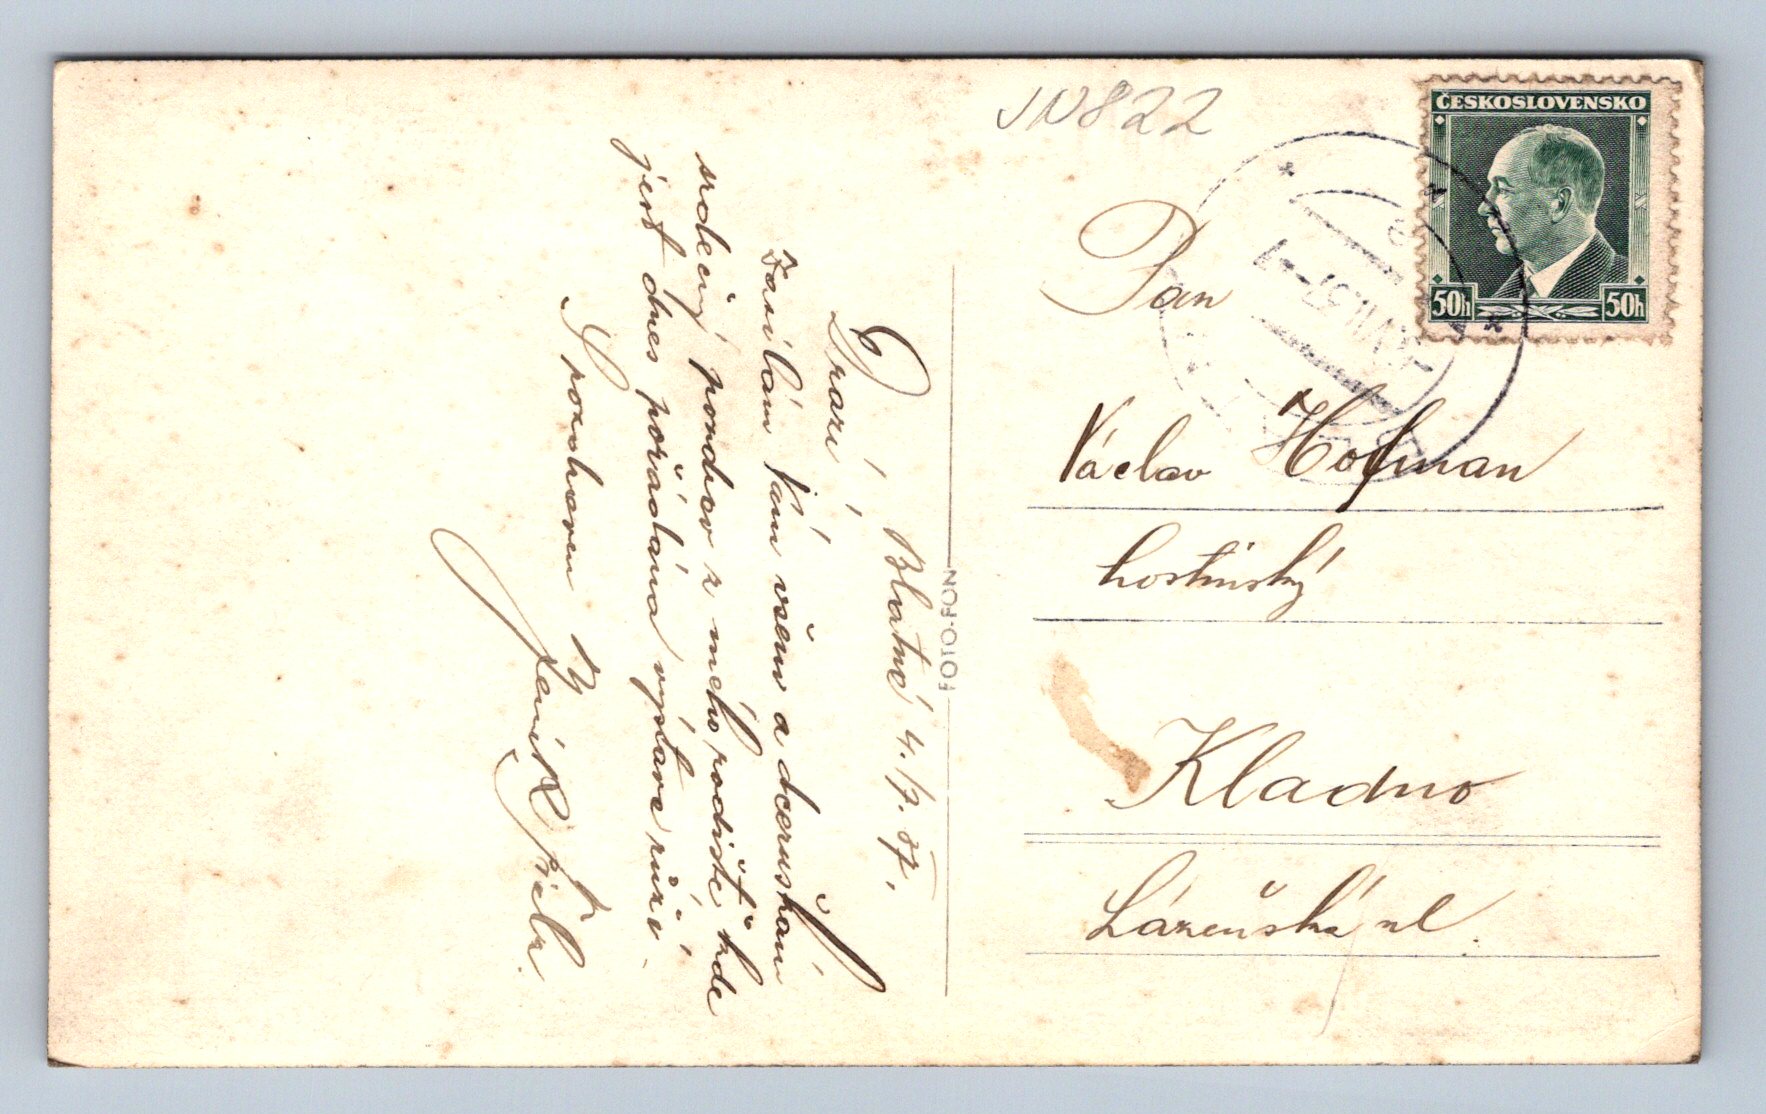 JN822
ČESKOSLOVENSKO
50h 50h
Pan
Václav Hofman
hostinský
Kladno
Lázeňská ul.
FOTO-FON
Blatná 4./7. 37.
Drazí!
Zasílám Vám všem a děvuškám
srdečný pozdrav z mého rodiště kde
jest dnes pořádána výstava růží.
S pozdravem
Jeník